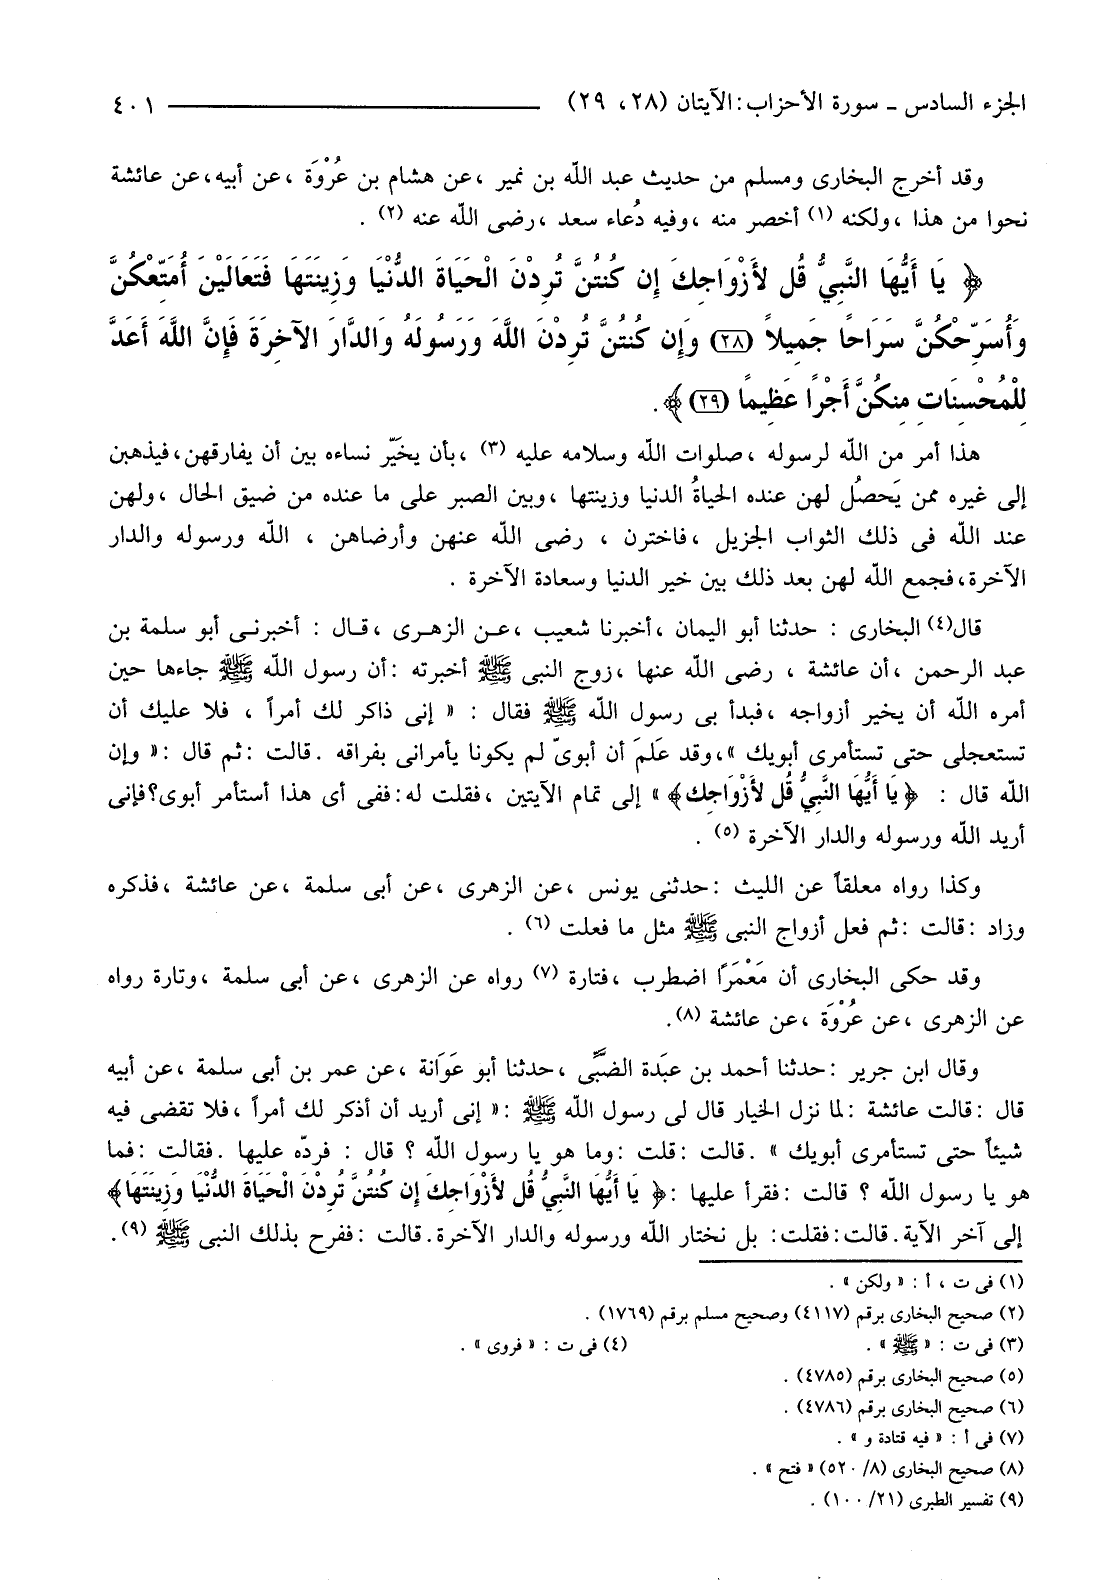 الجزء السادس - سورة الأحزاب: الآيتان (٢٨، ٢٩) ٤٠١
وقد أخرج البخارى ومسلم من حديث عبد الله بن نمير ، عن هشام بن عُرْوَة ، عن أبيه، عن عائشة
نحوا من هذا ، ولكنه (١) أخصر منه ، وفيه دُعاء سعد ، رضى الله عنه (٢) .
﴿ يَا أَيُّهَا النَّبِيُّ قُل لأَزْوَاجِكَ إِن كُنتُنَّ تُرِدْنَ الْحَيَاةَ الدُّنْيَا وَزِينَتَهَا فَتَعَالَيْنَ أُمَتِّعْكُنَّ
وَأُسَرِّحْكُنَّ سَرَاحًا جَمِيلاً (٢٨) وَإِن كُنتُنَّ تُرِدْنَ اللَّهَ وَرَسُولَهُ وَالدَّارَ الآخِرَةَ فَإِنَّ اللَّهَ أَعَدَّ
لِلْمُحْسِنَاتِ مِنكُنَّ أَجْرًا عَظِيمًا (٢٩) ﴾ .
هذا أمر من الله لرسوله ، صلوات الله وسلامه عليه (٣) ، بأن يخَيّر نساءه بين أن يفارقهن، فيذهبن
إلى غيره ممن يَحصُل لهن عنده الحياةُ الدنيا وزينتها ، وبين الصبر على ما عنده من ضيق الحال ، ولهن
عند الله فى ذلك الثواب الجزيل ، فاخترن ، رضى الله عنهن وأرضاهن ، الله ورسوله والدار
الآخرة، فجمع الله لهن بعد ذلك بين خير الدنيا وسعادة الآخرة .
قال(٤) البخارى : حدثنا أبو اليمان ، أخبرنا شعيب ، عن الزهرى ، قال : أخبرنى أبو سلمة بن
عبد الرحمن ، أن عائشة ، رضى الله عنها ، زوج النبى ﷺ أخبرته : أن رسول الله ﷺ جاءها حين
أمره الله أن يخير أزواجه ، فبدأ بى رسول الله ﷺ فقال : « إنى ذاكر لك أمراً ، فلا عليك أن
تستعجلى حتى تستأمرى أبويك »، وقد عَلمَ أن أبوىّ لم يكونا يأمرانى بفراقه . قالت : ثم قال : « وإن
الله قال : ﴿ يَا أَيُّهَا النَّبِيُّ قُل لأَزْوَاجِك﴾ » إلى تمام الآيتين ، فقلت له: ففى أى هذا أستأمر أبوى؟ فإنى
أريد الله ورسوله والدار الآخرة (٥) .
وكذا رواه معلقاً عن الليث : حدثنى يونس ، عن الزهرى ، عن أبى سلمة ، عن عائشة ، فذكره
وزاد : قالت : ثم فعل أزواج النبى ﷺ مثل ما فعلت (٦) .
وقد حكى البخارى أن مَعْمَرًا اضطرب ، فتارة (٧) رواه عن الزهرى ، عن أبى سلمة ، وتارة رواه
عن الزهرى ، عن عُرْوَة ، عن عائشة (٨).
وقال ابن جرير : حدثنا أحمد بن عبَدة الضبِّى ، حدثنا أبو عَوَانة ، عن عمر بن أبى سلمة ، عن أبيه
قال : قالت عائشة : لما نزل الخيار قال لى رسول الله ﷺ : « إنى أريد أن أذكر لك أمراً ، فلا تقضى فيه
شيئاً حتى تستأمرى أبويك » . قالت : قلت : وما هو يا رسول الله ؟ قال : فردّه عليها . فقالت : فما
هو يا رسول الله ؟ قالت : فقرأ عليها : ﴿ يَا أَيُّهَا النَّبِيُّ قُل لأَزْوَاجِكَ إِن كُنتُنَّ تُرِدْنَ الْحَيَاةَ الدُّنْيَا وَزِينَتَهَا﴾
إلى آخر الآية . قالت : فقلت : بل نختار الله ورسوله والدار الآخرة. قالت : ففرح بذلك النبى ﷺ (٩).
(١) فى ت ، أ : « ولكن » .
(٢) صحيح البخارى برقم (٤١١٧) وصحيح مسلم برقم (١٧٦٩) .
(٣) فى ت : « ﷺ » . (٤) فى ت : « فروى » .
(٥) صحيح البخارى برقم (٤٧٨٥) .
(٦) صحيح البخارى برقم (٤٧٨٦) .
(٧) فى أ : « فيه قتادة و » .
(٨) صحيح البخارى (٨/ ٥٢٠) « فتح » .
(٩) تفسير الطبرى (٢١/ ١٠٠) .